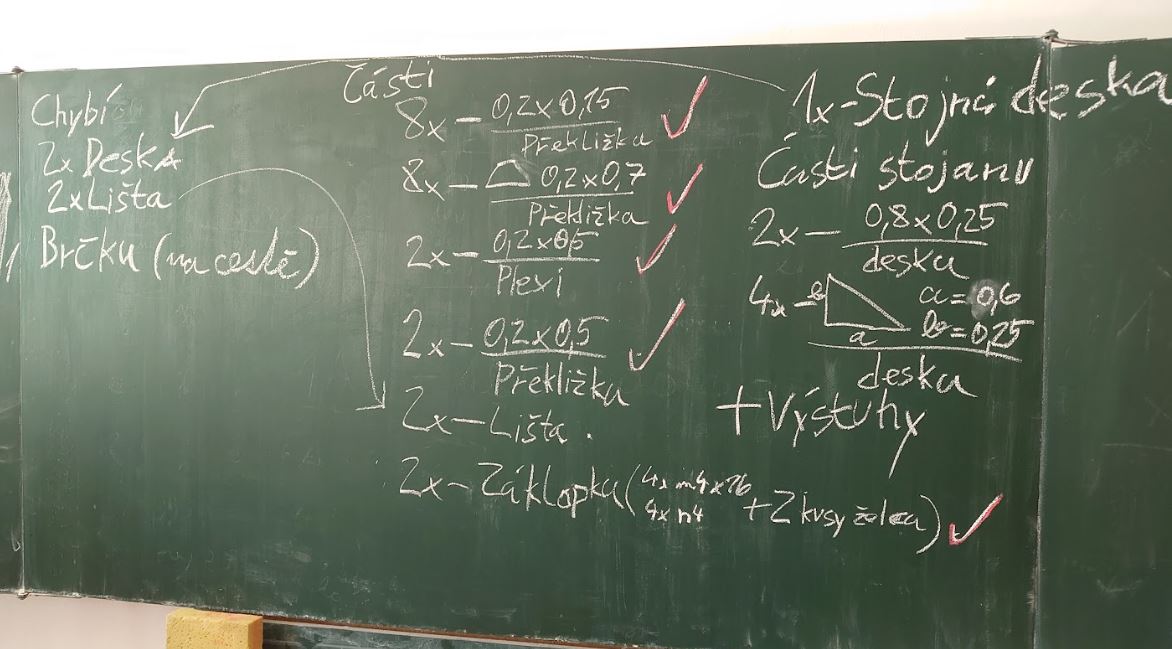 Chybí
2x Deska
2x Lišta
Brčku (na cestě)
Části
8x - 0,2x0,15
Překližka
8x - 0,2x0,7
Překližka
2x - 0,2x0,5
Plexi
2x - 0,2x0,5
Překližka
2x - Lišta.
2x - Záklopka (4x m4x16
4x n4 +2 kusy želea)
1x - Stojná deska
Části stojanu
2x - 0,8x0,25
deska
4x - b a a=0,6
b=0,25
deska
+Výstuhy